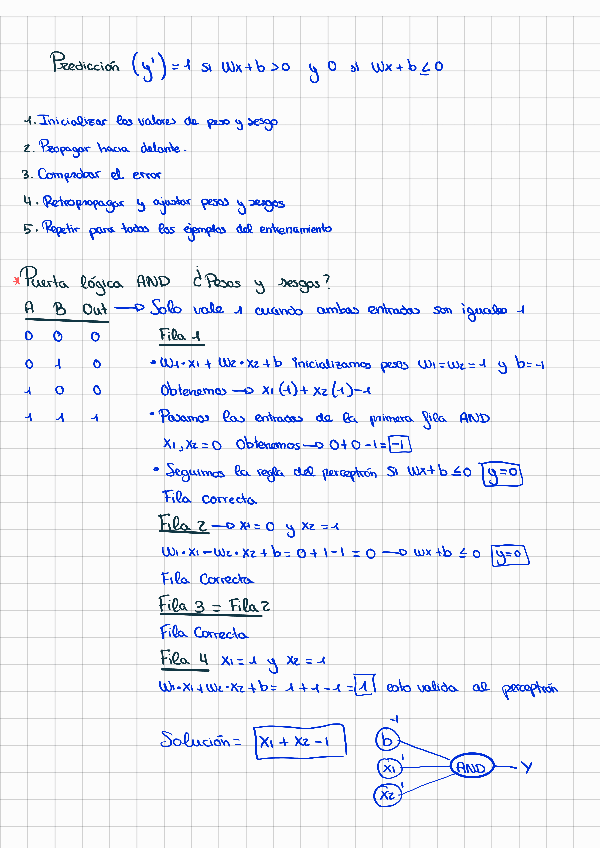 Predicción (y') = 1 si Wx + b > 0 y 0 si Wx + b ≤ 0
1. Inicializar los valores de peso y sesgo
2. Propagar hacia delante.
3. Comprobar el error
4. Retropropagar y ajustar pesos y sesgos
5. Repetir para todos los ejemplos del entrenamiento
* Puerta lógica AND ¿Pesos y sesgos?
A B Out → Solo vale 1 cuando ambas entradas son iguales 1
0 0 0 Fila 1
0 1 0 • W1·X1 + W2·X2 + b inicializamos pesos W1=W2=1 y b=-1
1 0 0 Obtenemos → X1(1) + X2(1) -1
1 1 1 • Pasamos las entradas de la primera fila AND
X1, X2 = 0 Obtenemos → 0+0-1 = -1
• Seguimos la regla del perceptrón si Wx+b ≤ 0 y=0
Fila correcta
Fila 2 → X1=0 y X2=1
W1·X1 - W2·X2 + b = 0+1-1 = 0 → wx+b ≤ 0 y=0
Fila Correcta
Fila 3 = Fila 2
Fila Correcta
Fila 4 X1=1 y X2=1
W1·X1+W2·X2+b = 1+1-1 = 1 esto valida al perceptrón
Solución = X1 + X2 - 1
-1
b
X1 1 AND Y
X2 1